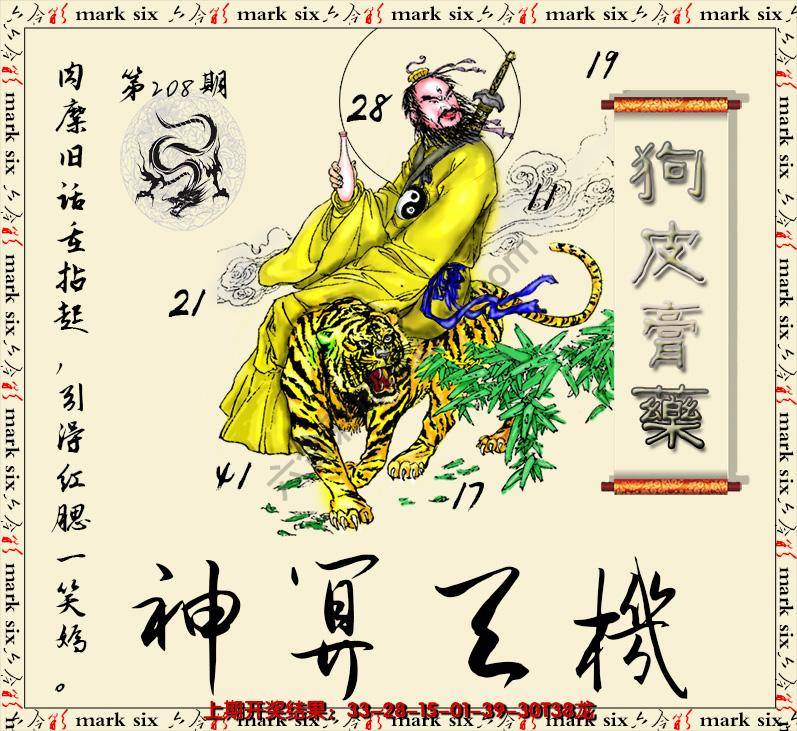 mark six 六合彩 mark six 六合彩 mark six 六合彩 mark six 六合彩 mark six
第208期
肉糜旧话重拈起，引得红腮一笑嫣。
19
28
11
21
41
17
狗皮膏藥
神算天機
上期开奖结果：33-28-15-01-39-30T38龙
mark six 六合彩 mark six 六合彩 mark six 六合彩 mark six 六合彩 mark six